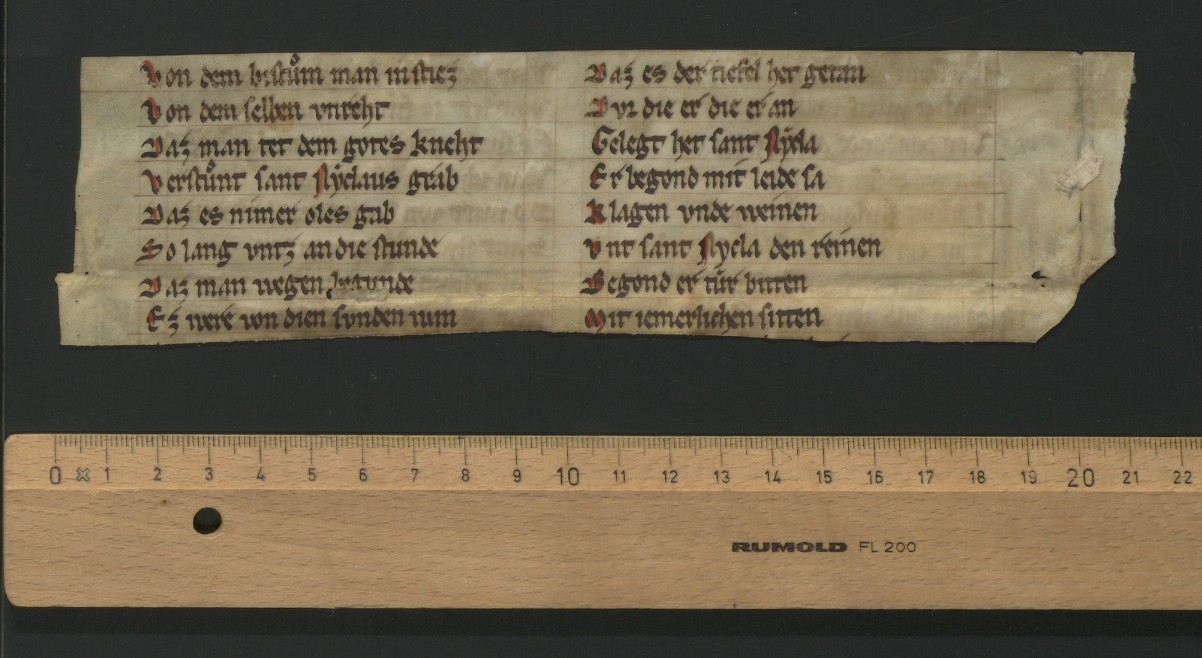 Von dem bistuͦm man in stiez
Von dem selben vnreht
Daz man tet dem gotes kneht
Verstuͦnt sant Nẏclaus grab
Daz es nimer oles gab
So lang vntz an die stunde
Daz man wegen begunde
Ez were von dien sunden
Daz es der tiefel het getan
Dvr die er die er an
Gelegt het sant Nẏcla
Er begond mit leide sa
Klagen vnde weinen
Vnt sant Nycla den reinen
Begond er túr bitten
Mit iemerlichen sitten
0 1 2 3 4 5 6 7 8 9 10 11 12 13 14 15 16 17 18 19 20 21 22
RUMOLD FL 200